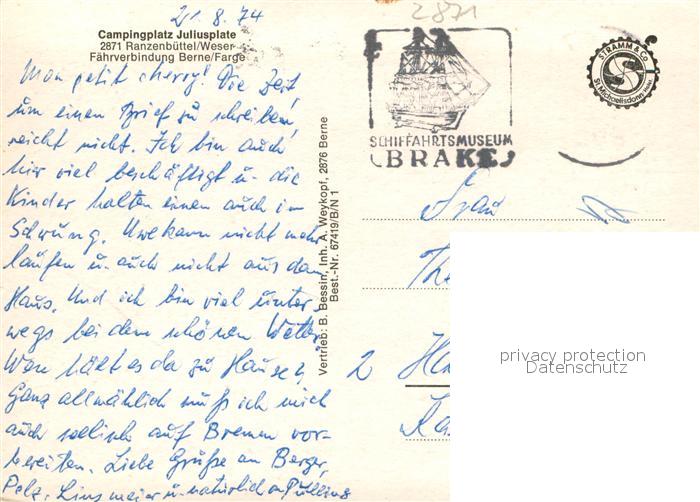 21.8.74
2871
Campingplatz Juliusplate
2871 Ranzenbüttel/Weser
Fährverbindung Berne/Farge
Mon petit cherry! Die Zeit,
um einen Brief zu schreiben
reicht nicht. Ich bin auch
hier viel beschäftigt u. die
Kinder halten einen auch in
Schwung. Uwe kann nicht mehr
laufen u. auch nicht aus dem
Haus. Und ich bin viel unter-
wegs bei dem schönen Wetter.
Wen hält es da zu Hause?
Ganz allmählich muß ich mich
auch seelisch auf Bremen vor-
bereiten. Liebe Grüße an Berger,
Pelz, Linsmeier u. natürlich an
Vertrieb: B. Bessin, Inh. A. Weykopf, 2876 Berne
Best.-Nr. 67419/B/N 1
SCHIFFAHRTSMUSEUM
BRAKE
STRAMM & Co
St. Michaelisdonn
Frau
The
2 Ha
privacy protection
Datenschutz